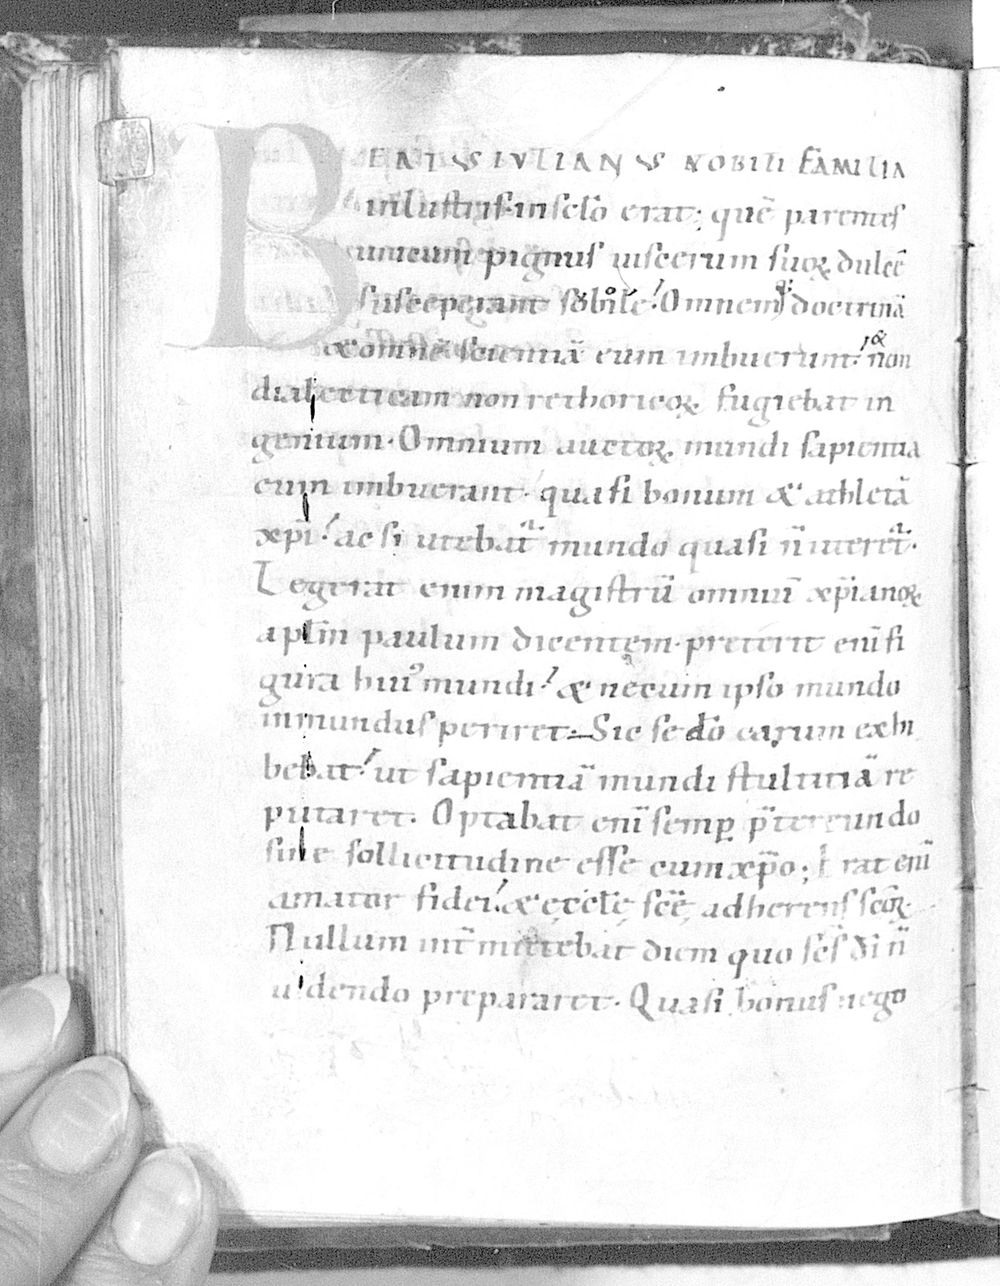 BEATUS IULIANUS NOBILI FAMILIA
inlustris. in sclo erat; quē parentes
unicum pignus uiscerum suoꝝ dulcē
susceperant sobole. Omnem doctrinā
& omnē scientiā eum imbuerunt. & non
dialecticam non rethoricoꝝ fugiebat in
genium. Omnium auctoꝝ mundi sapientia
eum imbuerant. quasi bonum & athletā
xp̄i. ac si utebat᷑ mundo quasi n̄ uteret᷑.
Legerat enim magistrū omniū xp̄ianoꝝ
aplm̄ paulum dicentem. preterit enī fi
gura hui᷒ mundi. & ne cum ipso mundo
inmundus periret. Sic se dō carum exhi
bebat. ut sapientiā mundi stultitiā re
putaret. Optabat enī semꝑ p̄tereundo
sine sollicitudine esse cum xp̄o; Erat enī
amator fidei. & ęcclę scę̄ adherens scōꝝ
Nullum int̄mittebat diem quo scs̄ dī n̄
uidendo prepararet. Quasi bonus nego